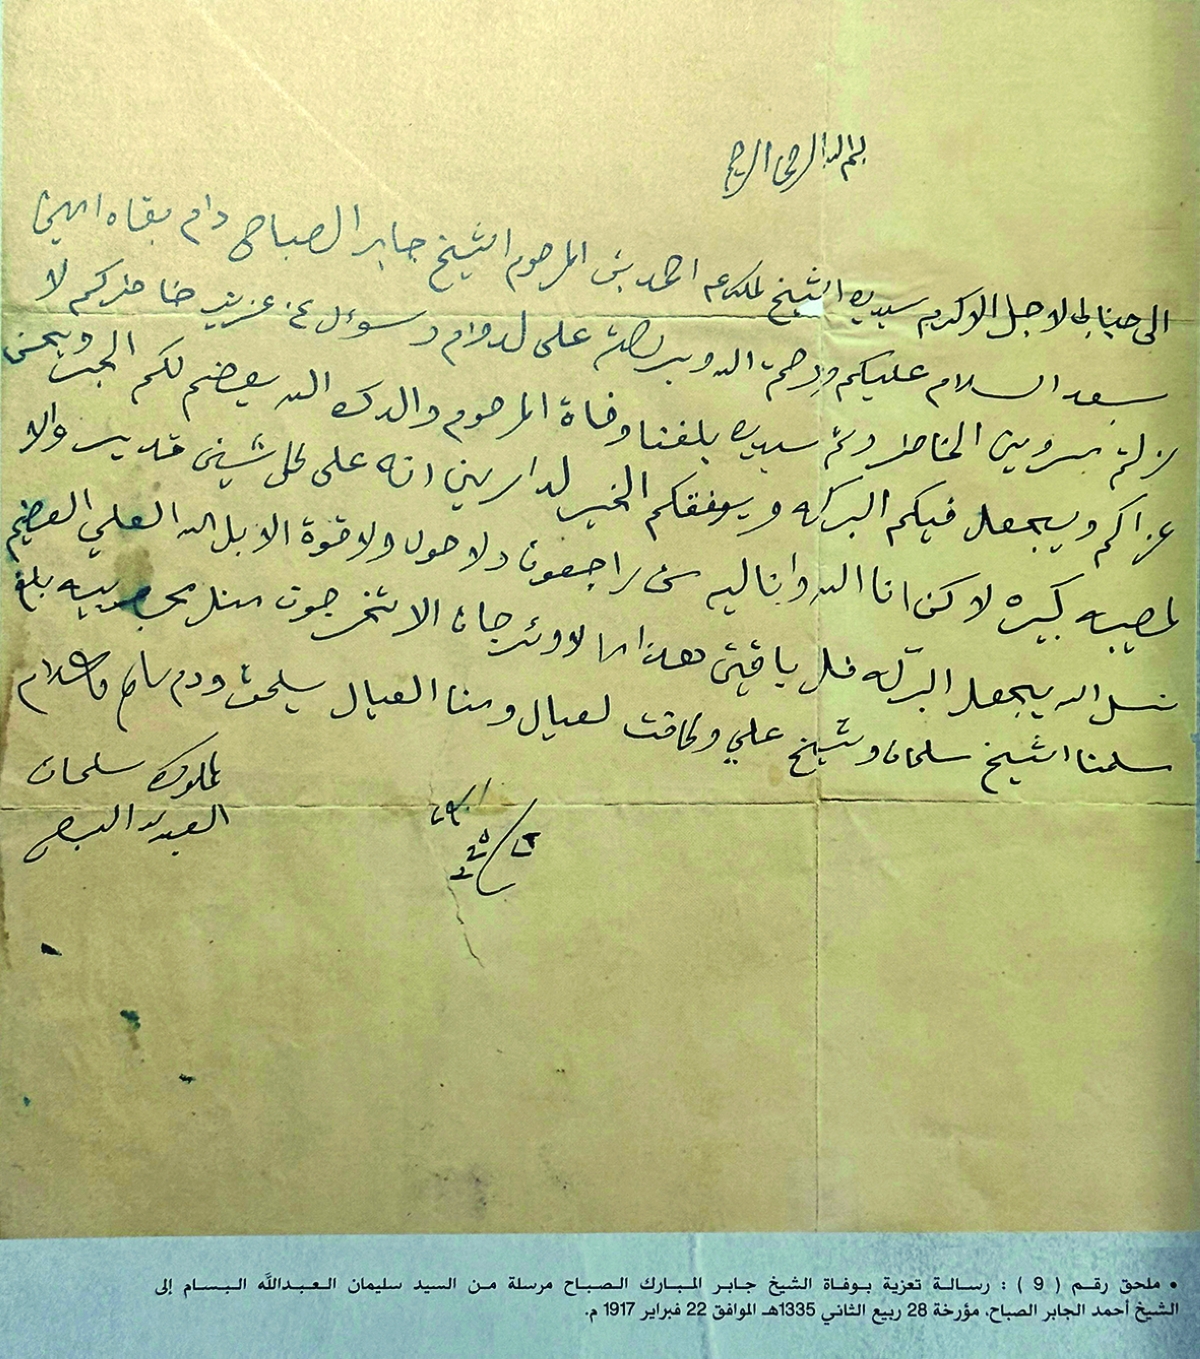 بسم الله الرحمن الرحيم
الى جناب الاجل الاكرم سيدي الشيخ المكرم احمد بن المرحوم الشيخ جابر الصباح دام بقاه امين
بعد السلام عليكم ورحمة الله وبركاته على لدوام وسوؤل عن عزيز خاطركم لا
زلتم بسرورين الخاطر وثم سيدي بلغنا وفاة المرحوم والدك الله يعضم لكم الجر ويحسن
عزاكم ويجعل فيكم البركه ويوفقكم الخير لدارين انه على كل شين قدير والا
لمصيبه كبيره لاكن انا الله وانا اليه راجعون ولا حول ولا قوة الا بلله العلي العضيم
نسل الله يجعل البركه فل باقين هذا ما الا
سلمنا الشيخ سلمان وشيخ علي وكافت لعيال ومنا العيال ودم سالم
لملوك سلمان
العبدلله البسام
٢٨ / ٣٣٥
• ملحق رقم ( 9 ) : رسالة تعزية بوفاة الشيخ جابر المبارك الصباح مرسلة من السيد سليمان العبدالله البسام إلى
الشيخ أحمد الجابر الصباح، مؤرخة 28 ربيع الثاني 1335هـ الموافق 22 فبراير 1917 م.